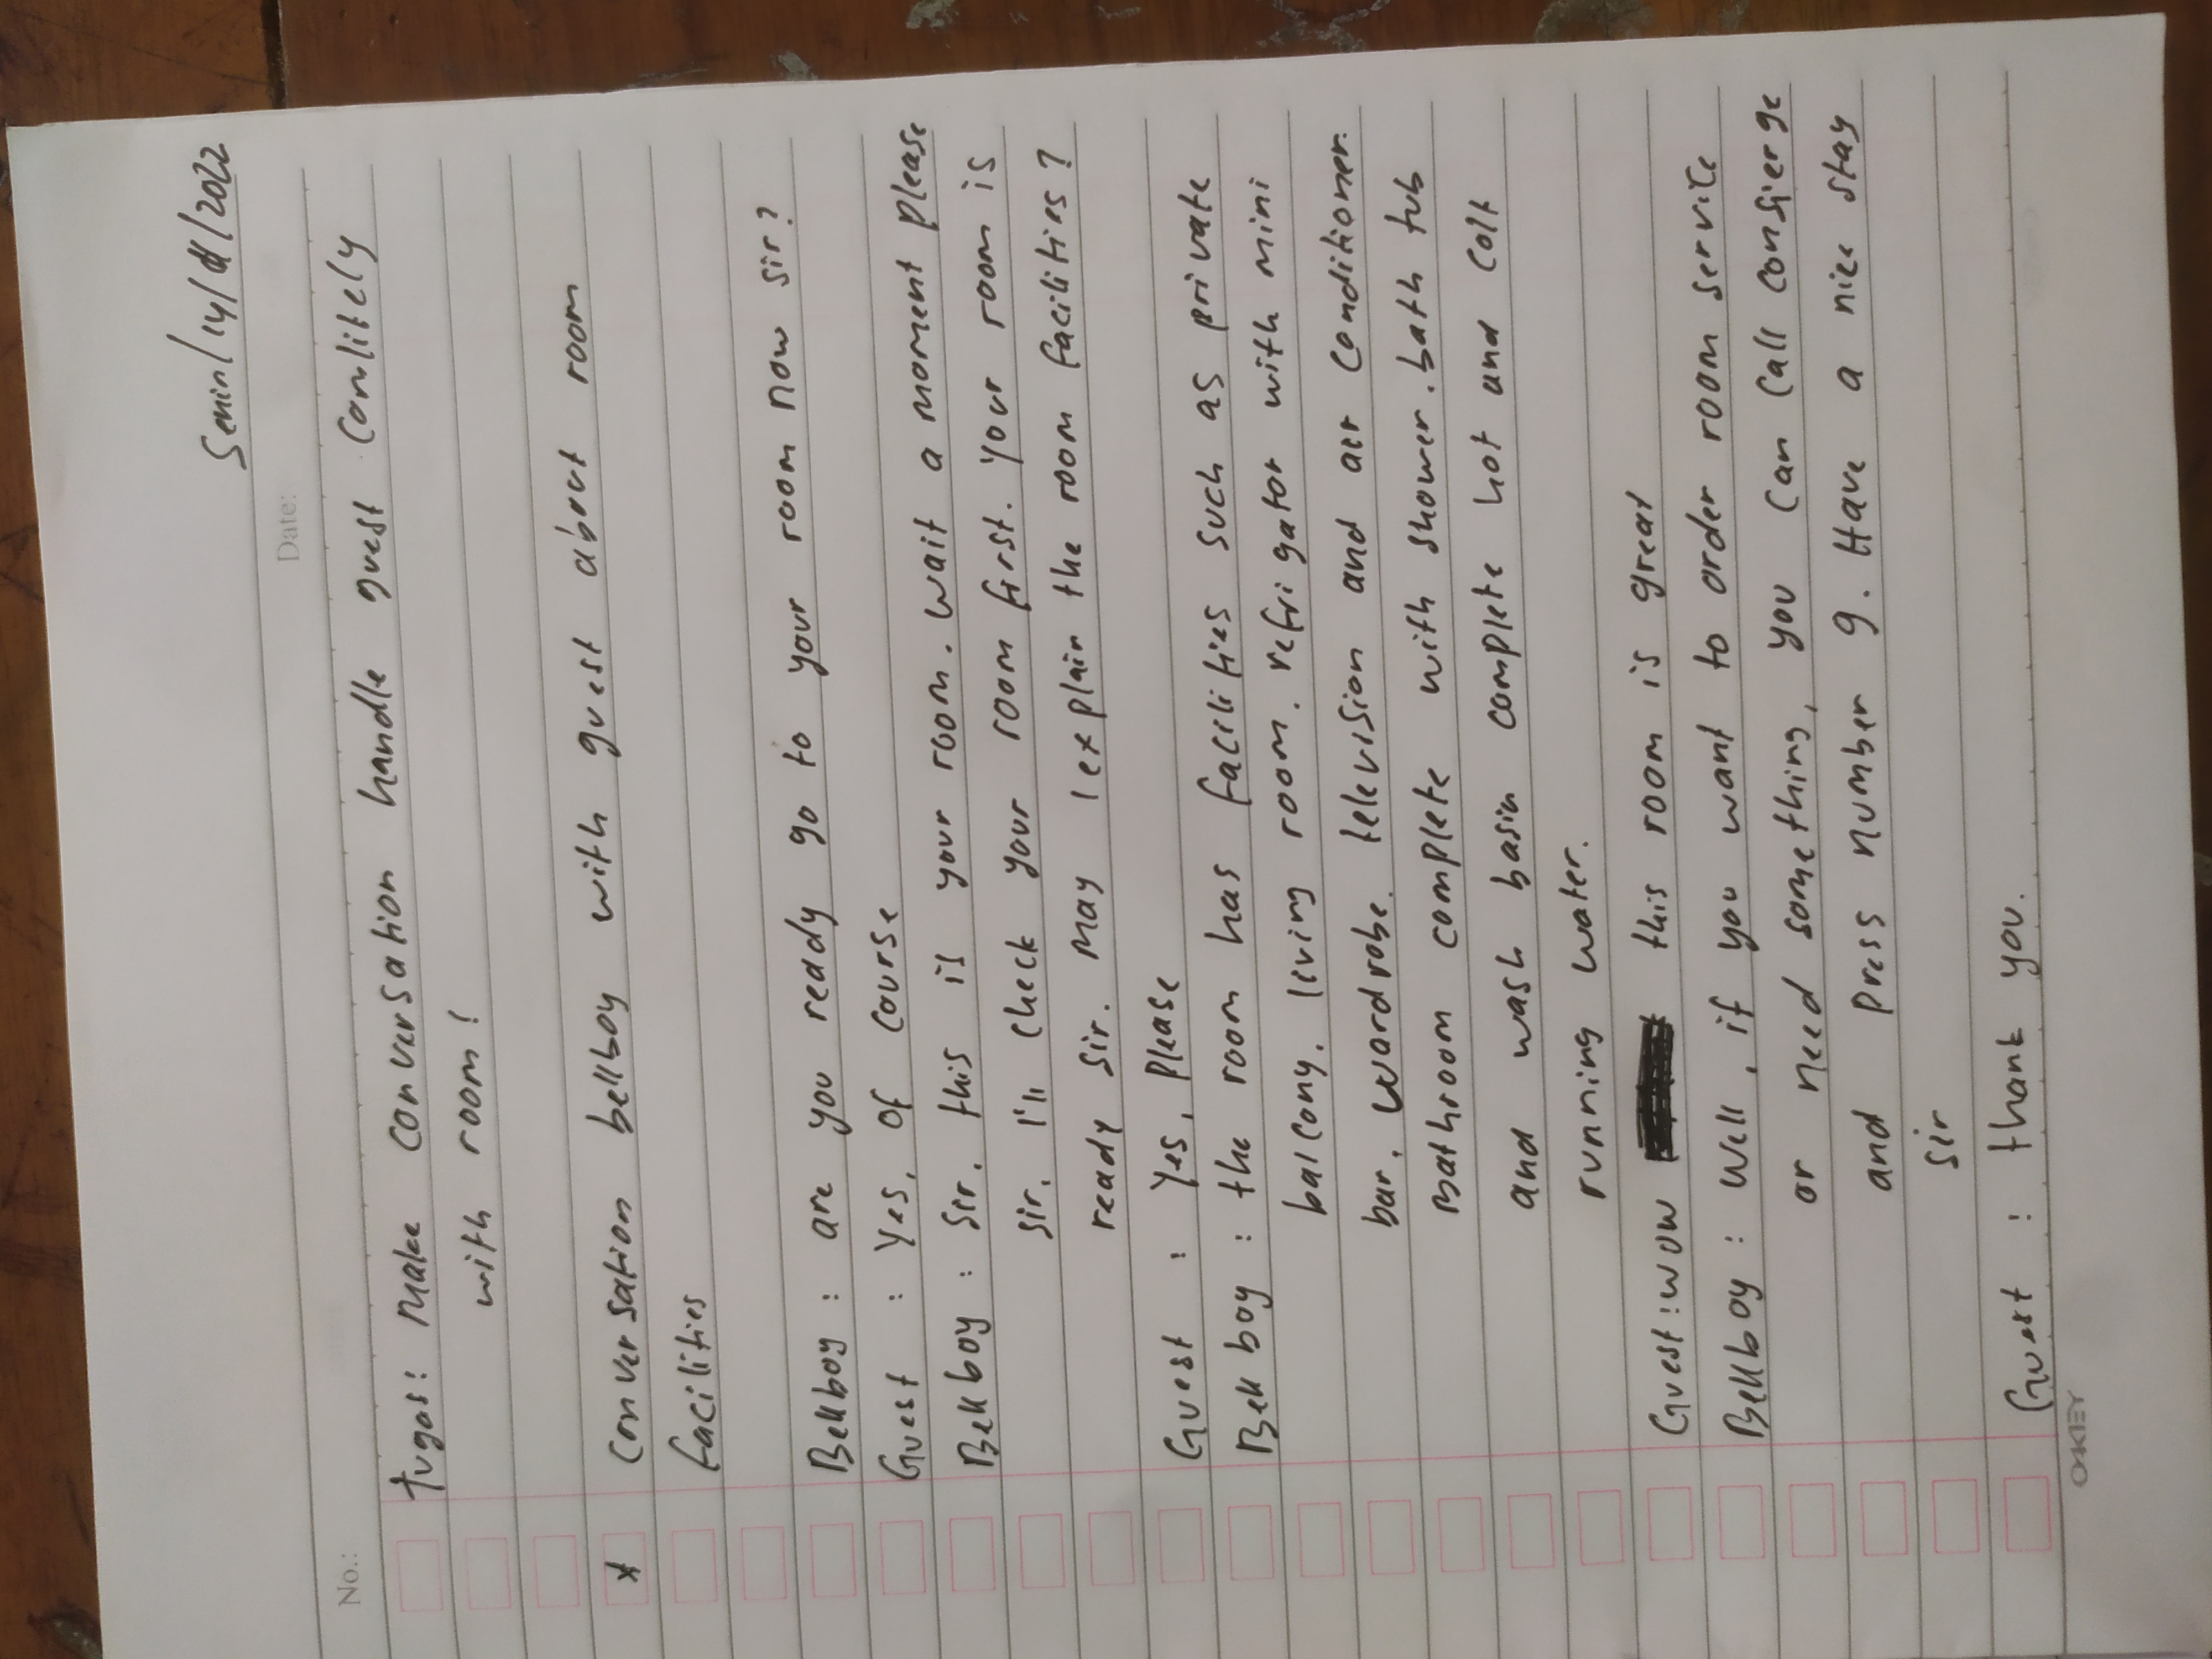 Senin/14/11/2022
Date:
No.:
tugas: Make conversation handle guest comlitely
with room!
* conversation bellboy with guest about room
facilities
Bellboy : are you ready go to your room now sir?
Guest : Yes, of course
Bellboy : Sir, this is your room. wait a moment please
sir, I'll check your room first. Your room is
ready sir. May I explain the room facilities?
Guest : Yes, please
Bellboy : the room has facilities such as private
balcony, living room, refrigator with mini
bar, wardrobe, television and air conditioner.
Bathroom complete with shower, bath tub
and wash basin complete hot and colt
running water.
Guest : wow this room is great
Bellboy : Well, if you want to order room service
or need something, you can call consierge
and press number 9. Have a nice stay
sir
Guest : thank you.
OKEY